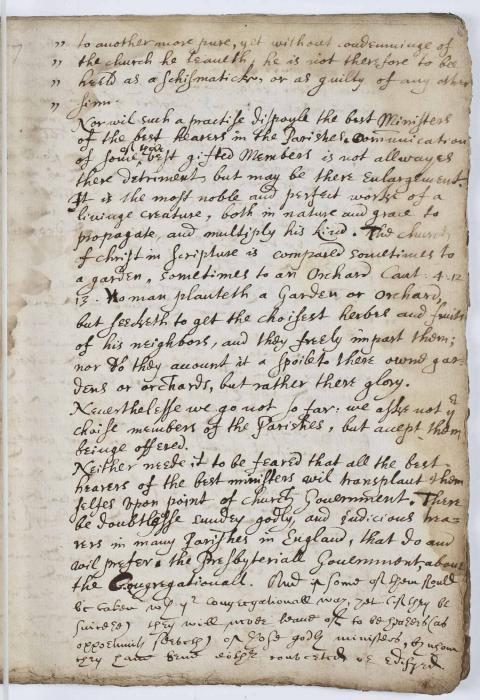 " to another more pure, yet without condemninge of
" the church he leaveth, he is not therefore to bee
" held as a Schismaticke, or as guilty of any other
" sinn.
Nor wil such a practise dispoyle the best Ministers
of the best hearers in the Parishes. Communication
of some of there best gifted Members is not allwayes
there detriment, but may be there Enlargement.
It is the most noble and perfect worke of a
livinge creature, both in nature and grace to
propagate, and multiply his kind. The church
of christ in Scripture is compared sometimes to
a garden, sometimes to an Orchard Cant. 4. 12
13. No man planteth a Garden or Orchard,
but seeketh to get the choisest herbes and fruits
of his neighbors, and they freely impart them;
nor do they acount it a spoile to there owne gar-
dens or orchards, but rather there glory.
Neverthelesse we go not so far: we aske not ye
choise members of the Parishes, but acept them
beinge offered.
Neither neede it to be feared that all the best
hearers of the best ministers wil transplant them
selfes upon point of church Government. There
be doubtlesse sundry godly, and Judicious hea-
rers in many Parishes in England, that do and
wil prefer the Presbyteriall Government above
the Congregationall. And if some of them should
be taken ye congregationall way, yet
they will leave
opportunity of those godly ministers, by whom
they have bene edifyed